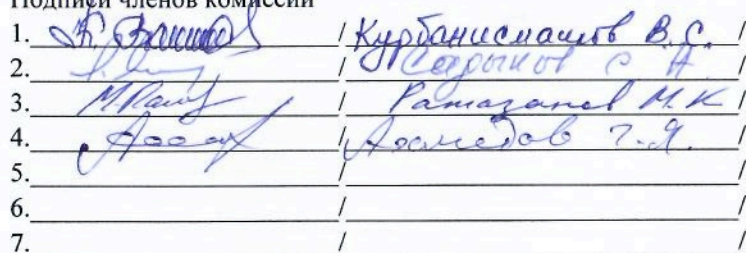 Подписи членов комиссии
1. / Курбанисмаилов В. С. /
2. / Садыков С А /
3. М.Рама / Рамазанов М. К /
4. / Ахмедов Г.Я. /
5. / /
6. / /
7. / /